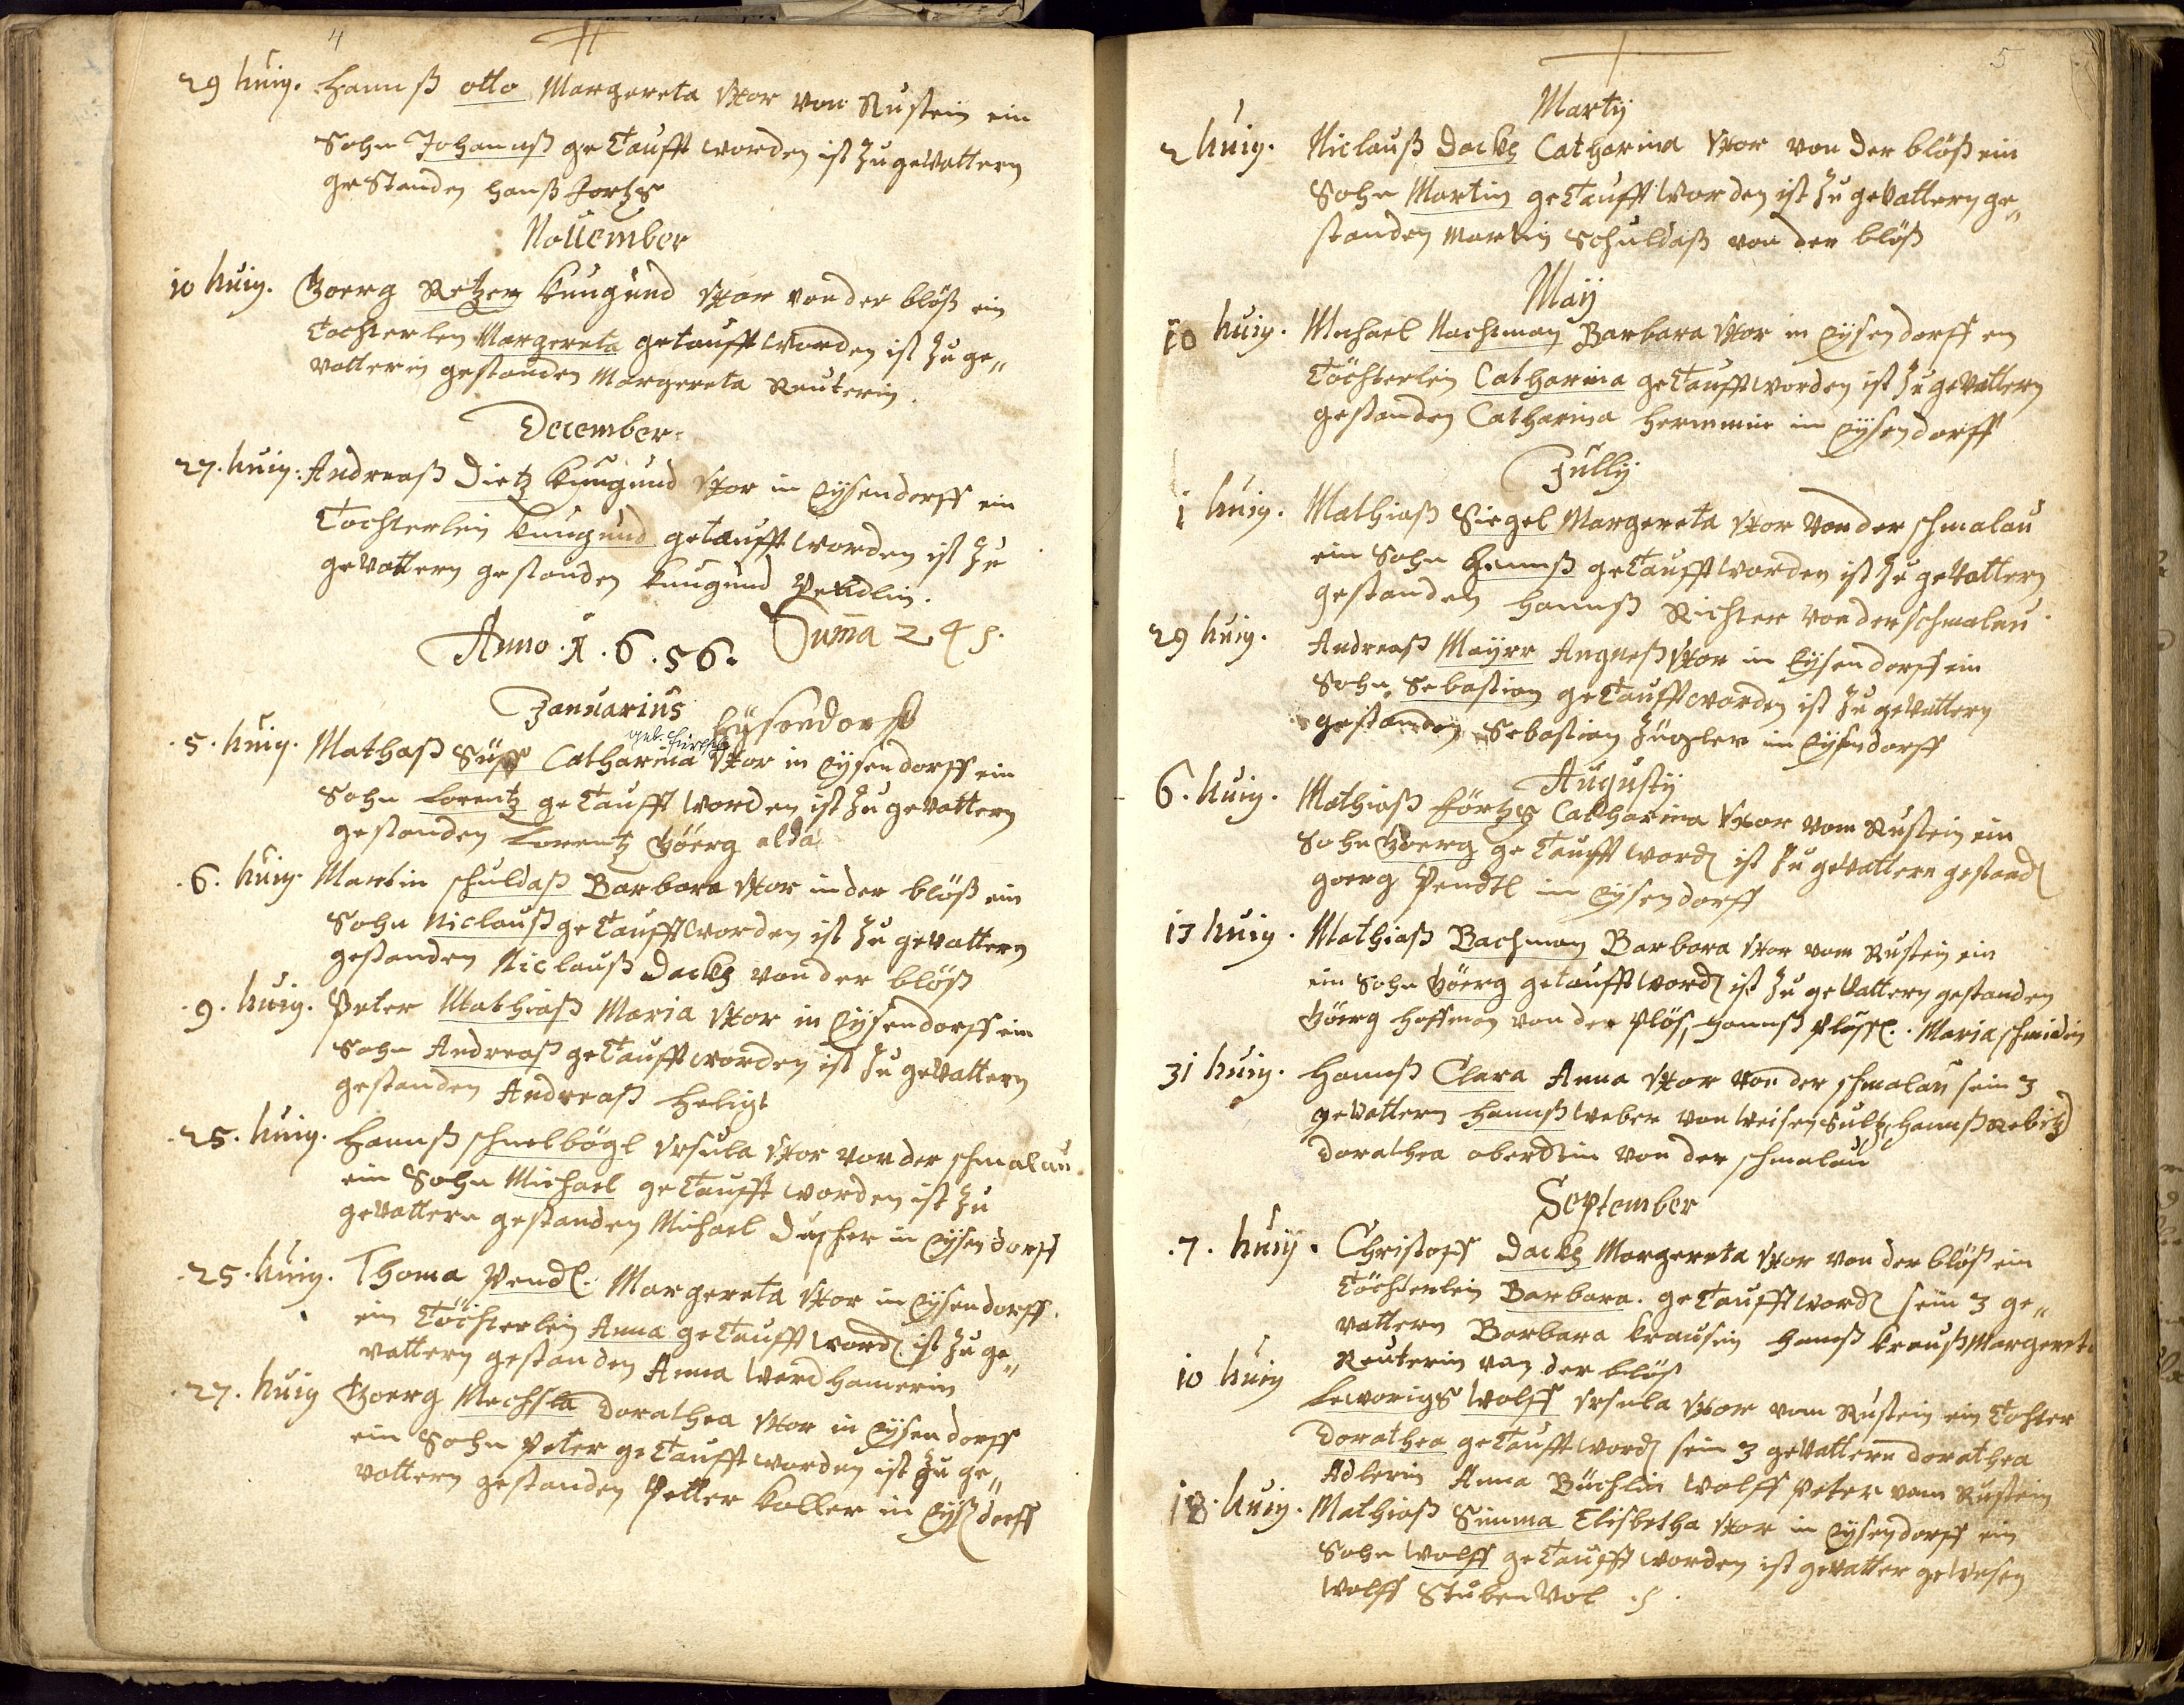 4
29 huiy. Hannß otto Margereta vxor von Rustein ein
Sohn Johannß getaufft worden ist zu gevattern
gestanden Hanß
November
10 huiy. Goerg Retzer Kungund vxor von der blöß ein
Tochterlen Margereta getaufft worden ist zu ge„
vatterin gestanden Margereta Reuterin.
December
27. huiy. Andreaß Dietz Kungund vxor in Eysendorff ein
Tochterlein Kungund getaufft worden ist zu
gevattern gestanden Kungund Pendlin.
Anno . 1 . 6 . 56. Summa 24
Januarius Eysendorf
geb.
. 5 . huiy. Mathaß Süß Catharina vxor in Eysendorff ein
Sohn Lorentz getaufft worden ist zu gevattern
gestanden Lorentz Göerg alda
. 6 . huiy. Martin schuldaß Barbara vxor in der blöß ein
Sohn Niclauß getaufft worden ist zu gevattern
gestanden Niclauß von der blöß
. 9 . huiy. Peter Mathiaß Maria vxor in Eysendorff ein
Sohn Andreaß getaufft worden ist zu gevattern
gestanden Andreaß Heligt
. 25 . huiy. Hannß schnelbögl vrsula vxor von der schmalau
ein Sohn Michael getaufft worden ist zu
gevattern gestanden Michael Duscher in Eysendorff
. 25 . huiy. Thoma Pendl. Margereta vxor in Eysendorff.
ein Töchterlein Anna getaufft word ist zu ge„
vattern gestanden Anna Werdhamerin
. 27 . huiy Goerg Dorathea vxor in Eysendorff
ein Sohn Peter getaufft worden ist zu ge„
vattern gestanden Petter Koller in Eyßdorff
5
Marty
2 huiy. Niclauß Catharina vxor von der blöß ein
Sohn Martin getaufft worden ist zu gevattern ge„
standen Martin Schuldaß von der blöß
May
10 huiy. Michael Nachtman Barbara vxor in Eysendorff en
Töchterlein Catharina getaufft worden ist zu gevattern
gestanden Catharina in Eysendorff
Jully
1 huiy. Mathiaß Siegel Margereta vxor von der schmalau
ein Sohn Hannß getaufft worden ist zu gevattern
gestanden Hannß Richter von der schmalau.
29 huiy. Andreaß Mayrr Angneß vxor in Eysendorff ein
Sohn Sebastian getaufft worden ist zu gevattern
gestanden Sebastian Zügler in Eysendorff
Augusty
6. huiy. Mathiaß Catharina vxor vom Rustein ein
Sohn Goerg getaufft word ist zu gevattern gestand
goerg Pendtl in Eysendorff
13 huiy. Mathiaß Bachman Barbara vxor vom Rustein ein
ein Sohn Göerg getaufft word ist zu gevattern gestanden
Göerg Hoffman von der Plöß, Hannß Plößl. Maria schmidin
31 huiy. Hannß Clara Anna vxor von der schmalau sein 3
gevattern Hannß weber von Weisensultz, Hannß
Dorathea von der schmalau
September
. 7 . huiy. Christoff Margereta vxor von der blöß ein
Töchterlein Barbara. getaufft word sein 3 ge„
vattern Barbara Krausin Hannß Krauß Margereta
Reuterin von der blöß
10 huiy wolff vrsula vxor vom Rustein ein Tohter
Dorathea getaufft word sein 3 gevattern Dorathea
Adlerin Anna Büchlin Wolff Peter vom Rustein
18. huiy. Mathiaß Simma Elisbetha vxor in Eysendorff ein
Sohn Wolff getaufft worden ist gevatter gewesen
Wolff Stubenvol